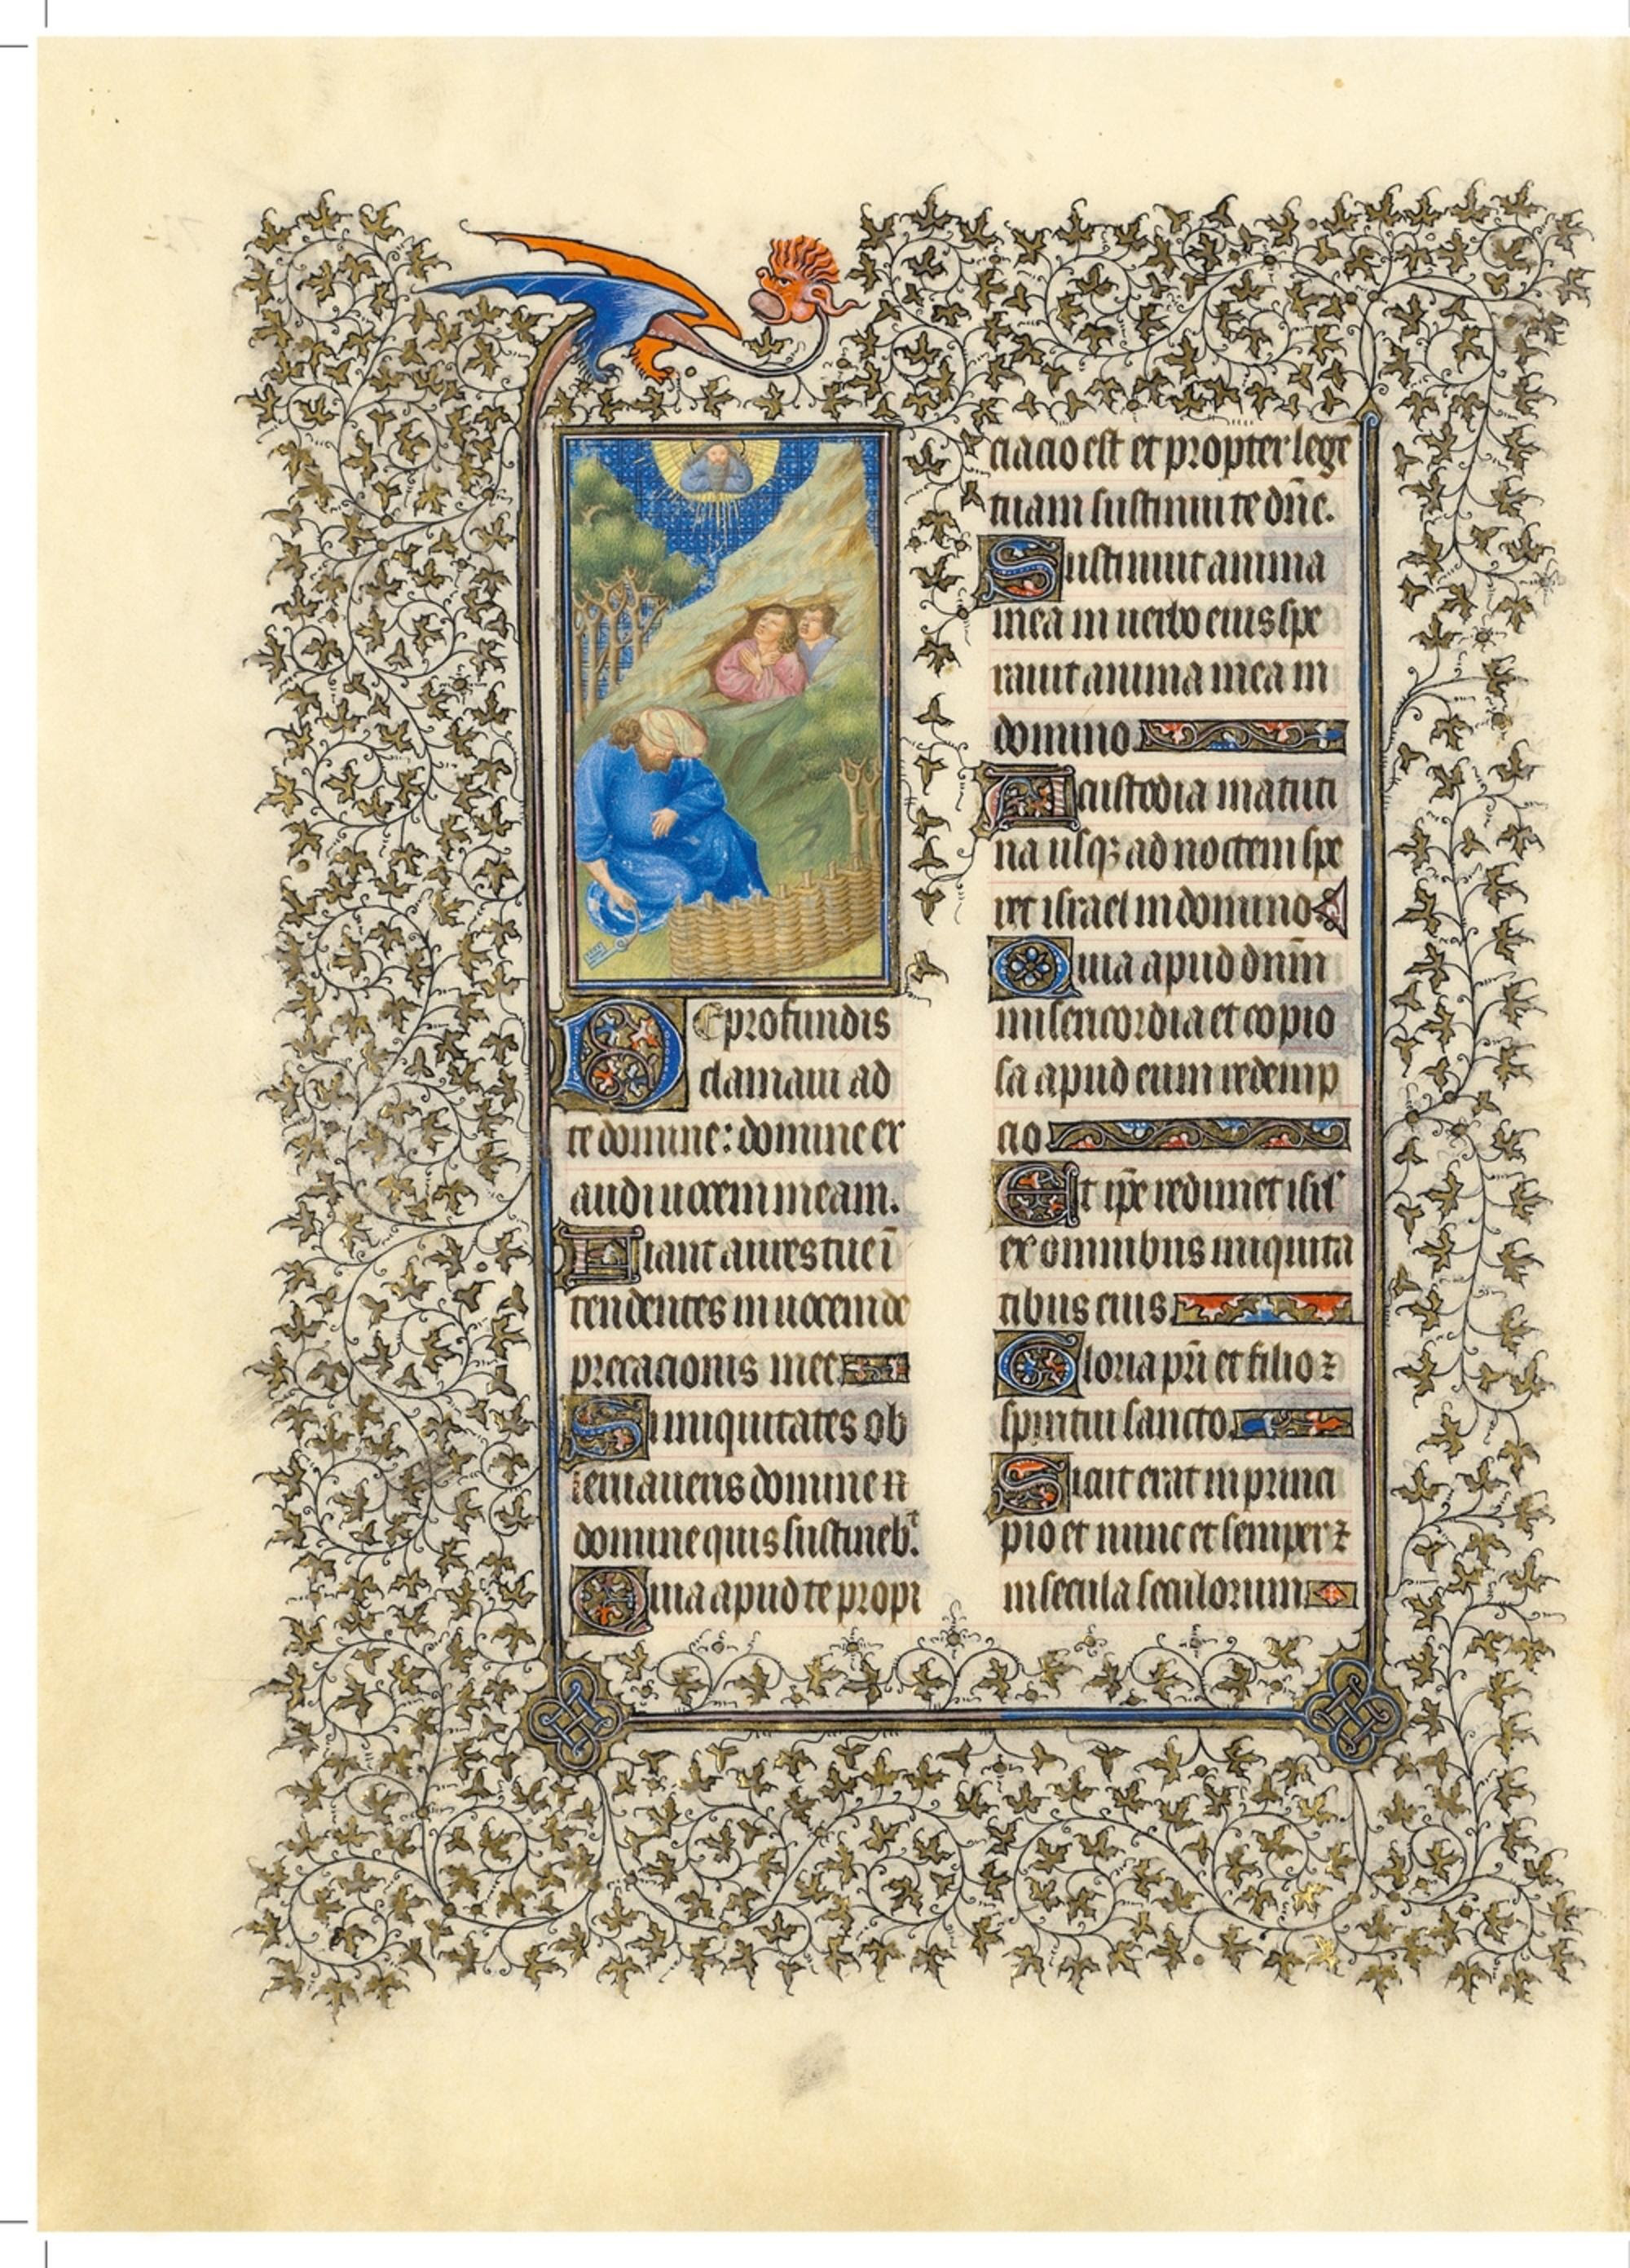 De profundis
clamaui ad
te domine: domine ex
audi uocem meam.
Fiant aures tue ī
tendentes in uocem de
precacionis mee
Si iniquitates ob
seruaueris domine
domine quis sustineb't.
Quia apud te propi
ciacio est et propter lege
tuam sustinui te dn̄e.
Sustinuit anima
mea in uerbo eius spe
rauit anima mea in
domino
A custodia matuti
na usqꝫ ad noctem spe
ret israel in domino
Quia apud dn̄m
misericordia et copio
sa apud eum redemp
cio
Et ip̄e redimet isrl'
ex omnibus iniquita
tibus eius
Gloria pr̄i et filio ⁊
spiritui sancto.
Sicut erat in princi
pio et nunc et semper ⁊
in secula seculorum